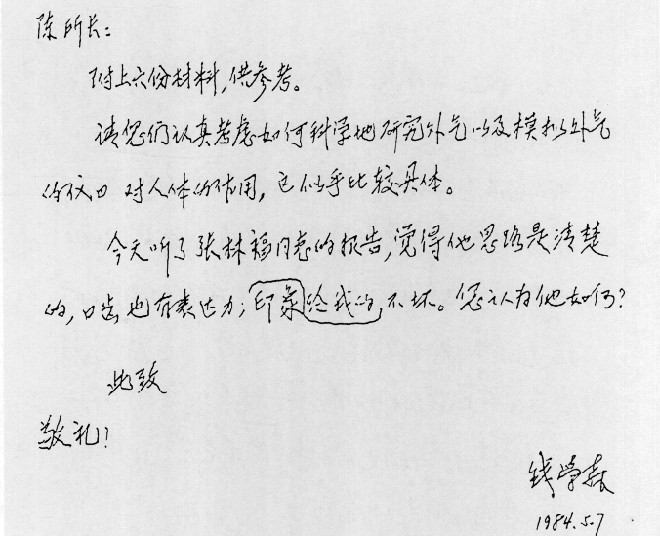 陈所长:
附上六份材料,供参考。
请您们认真考虑如何科学地研究外气以及模拟外气
的仪口对人体的作用,这似乎比较具体。
今天听了张林福同志的报告,觉得他思路是清楚
的,口齿也有表达力;印象给我的,不坏。您认为他如何?
此致
敬礼!
钱学森
1984.5.7